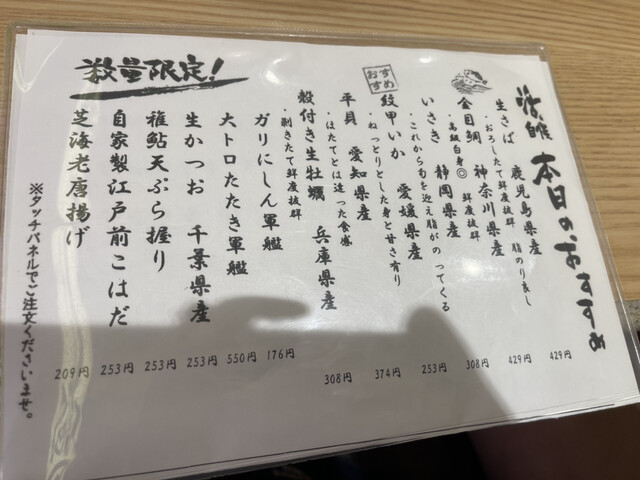 本日のおすすめ
生さば 鹿児島県産 429円
・おろしたて鮮度抜群 脂のり良し
金目鯛 神奈川県産 429円
・高級白身◎ 鮮度抜群
いさき 静岡県産 308円
・これから旬を迎え脂がのってくる
おすすめ
紋甲いか 愛媛県産 253円
・ねっとりとした身と甘さ有り
平貝 愛知県産 374円
・ほたてとは違った食感
殻付き生牡蠣 兵庫県産 308円
・剥きたて鮮度抜群
数量限定!
ガリにしん軍艦 176円
大トロたたき軍艦 550円
生かつお 千葉県産 253円
稚鮎天ぷら握り 253円
自家製江戸前こはだ 253円
芝海老唐揚げ 209円
※タッチパネルでご注文くださいませ。